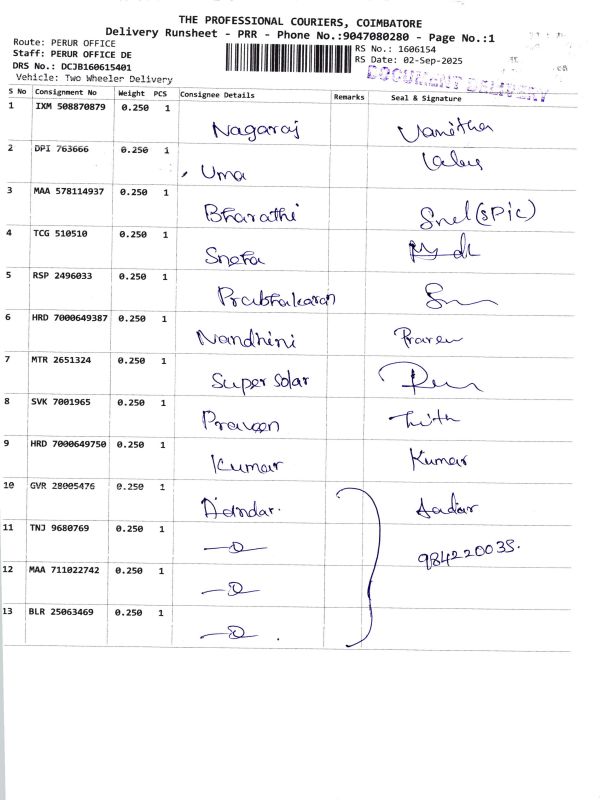 THE PROFESSIONAL COURIERS, COIMBATORE
Delivery Runsheet - PRR - Phone No.:9047080280 - Page No.:1
Route: PERUR OFFICE
Staff: PERUR OFFICE DE
DRS No.: DCJB160615401
Vehicle: Two Wheeler Delivery
RS No.: 1606154
RS Date: 02-Sep-2025
DOCUMENT DELIVERY
S No Consignment No Weight PCS Consignee Details Remarks Seal & Signature
1 IXM 508870879 0.250 1 Nagaraj Vanitha
2 DPI 763666 0.250 1 Uma
3 MAA 578114937 0.250 1 Bharathi Snel (SPic)
4 TCG 510510 0.250 1 Sneha
5 RSP 2496033 0.250 1 Prabhakaran
6 HRD 7000649387 0.250 1 Nandhini Praveen
7 MTR 2651324 0.250 1 Super Solar
8 SVK 7001965 0.250 1 Praveen
9 HRD 7000649750 0.250 1 Kumar Kumar
10 GVR 28005476 0.250 1
11 TNJ 9680769 0.250 1 984220035.
12 MAA 711022742 0.250 1
13 BLR 25063469 0.250 1